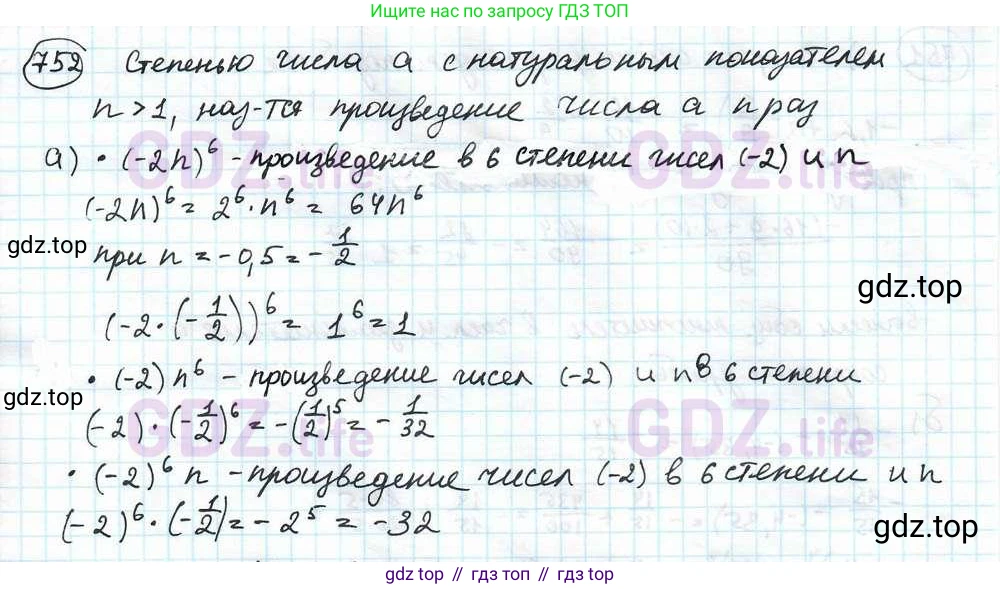 Ищите по запросу ГДЗ ТОП
752 Степенью числа a с натуральным показателем
n > 1, наз-тся произведение числа a n раз
GDZ.life GDZ.life
а) • (-2n)⁶ - произведение в 6 степени чисел (-2) и n
(-2n)⁶ = 2⁶ · n⁶ = 64n⁶
gdz.top
при n = -0,5 = -1/2
gdz.top
(-2 · (-1/2))⁶ = 1⁶ = 1
• (-2) n⁶ - произведение чисел (-2) и n в 6 степени
gdz.top
GDZ.life GDZ.life
(-2) · (-1/2)⁶ = -(1/2)⁵ = -1/32
• (-2)⁶ n - произведение чисел (-2) в 6 степени и n
(-2)⁶ · (-1/2) = -2⁵ = -32
gdz.top
gdz top // гдз топ // gdz top